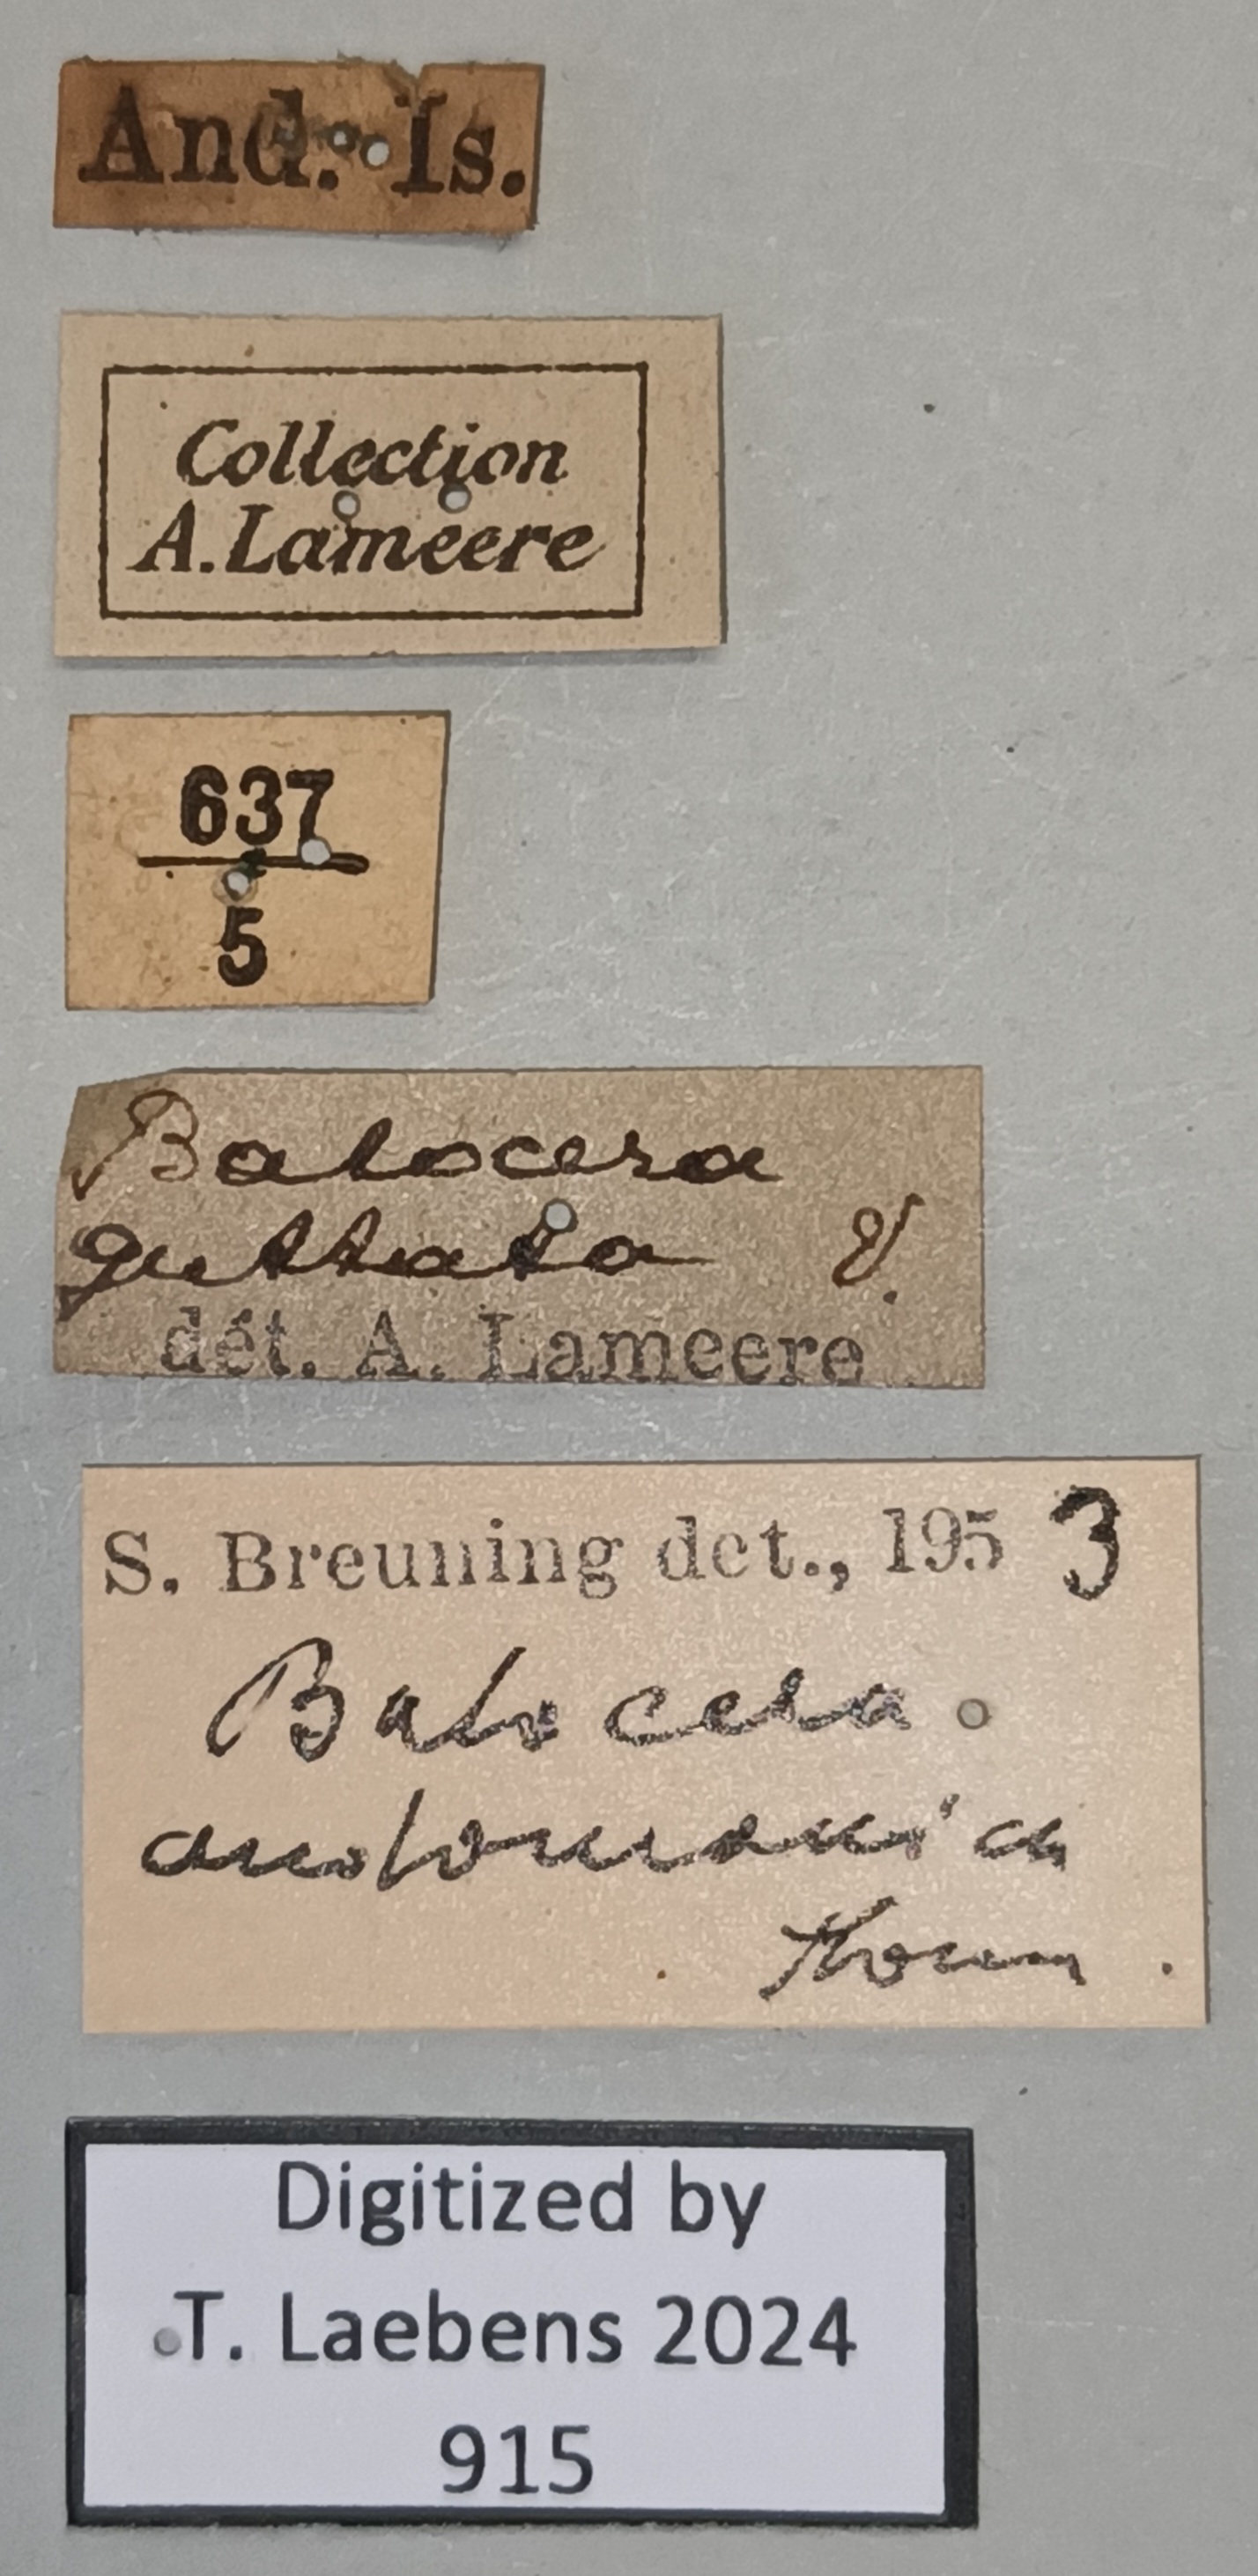 And. Is.
Collection
A. Lameere
637
5
Batocera
guttata V.
dét. A. Lameere
S. Breuning det., 195 3
Batocera
andamanica
Thoms .
Digitized by
T. Laebens 2024
915